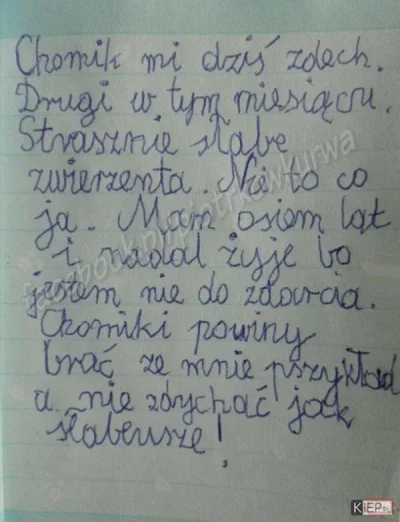 Chomik mi dziś zdech.
Drugi w tym miesiącu.
Strasznie słabe
zwierzenta. Nie to co
ja. Mam osiem lat
i nadal żyje bo
jestem nie do zdarcia.
Chomiki powiny
brać ze mnie pszykład
a nie zdychać jak
słabeusze!
facebook.pl/piotrkowkurwa
KIEP.PL